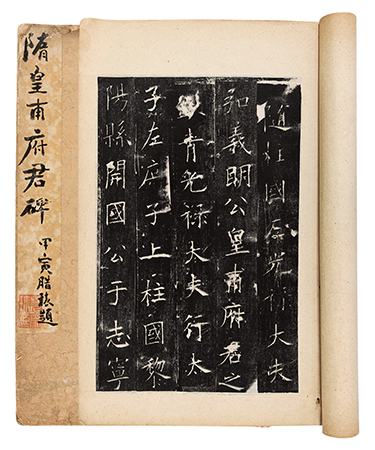 隋皇甫府君碑
甲寅腊題
隨柱國左光祿大夫
弘義明公皇甫府君之
銀青光祿大夫行太
子左庶子上柱國黎
陽縣開國公于志寧